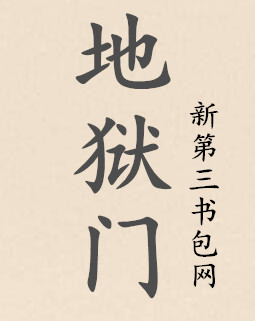 地狱门
新第三书包网